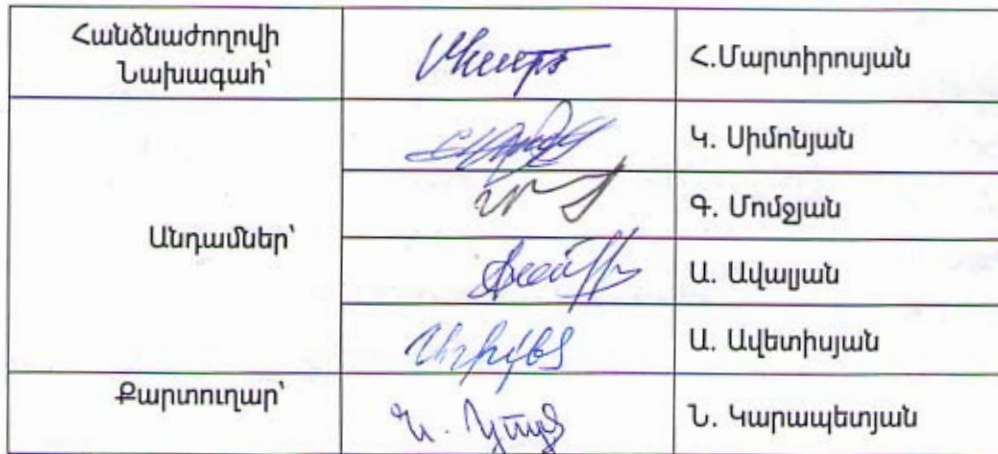 Հանձնաժողովի
Նախագահ՝
Հ.Մարտիրոսյան
Կ. Սիմոնյան
Գ. Մոմջյան
Անդամներ՝
Ա. Ավալյան
Ա. Ավետիսյան
Քարտուղար՝
Ն. Կարապետյան